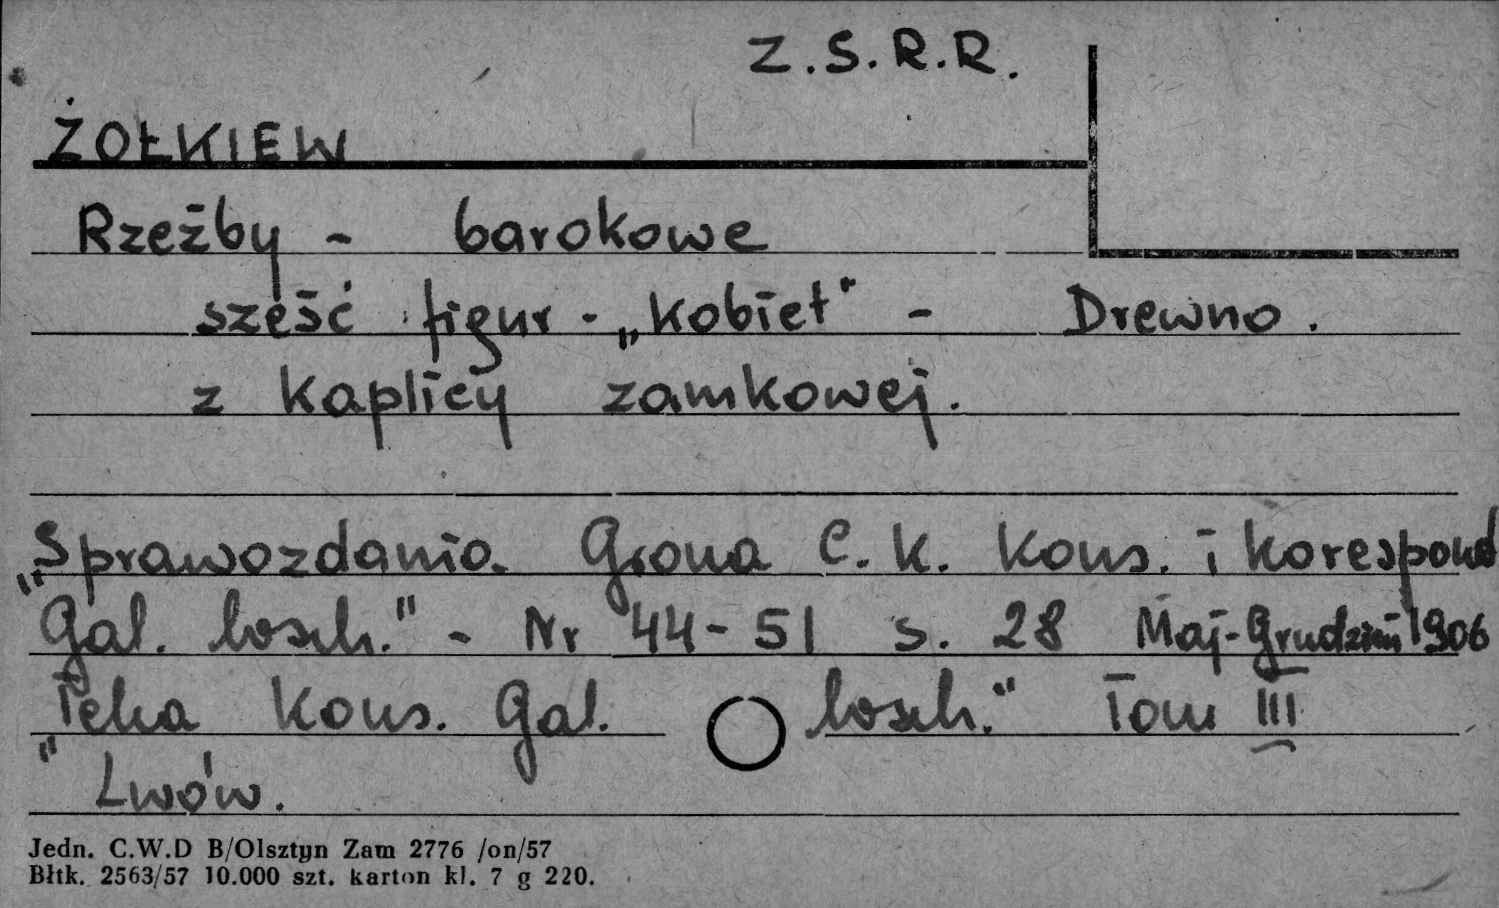 Z.S.R.R.
ŻOŁKIEW
Rzeźby - barokowe
sześć figur - „kobiet" - Drewno.
z kaplicy zamkowej.
„Sprawozdania Grona C. K. Kons. i korespond
Gal. wsch." - Nr 44-51 s. 28 Maj-Grudzień 1906
„Teka Kons. Gal. wsch." Tom III
Lwów.
Jedn. C.W.D B/Olsztyn Zam 2776 /on/57
Błtk. 2563/57 10.000 szt. karton kl. 7 g 220.